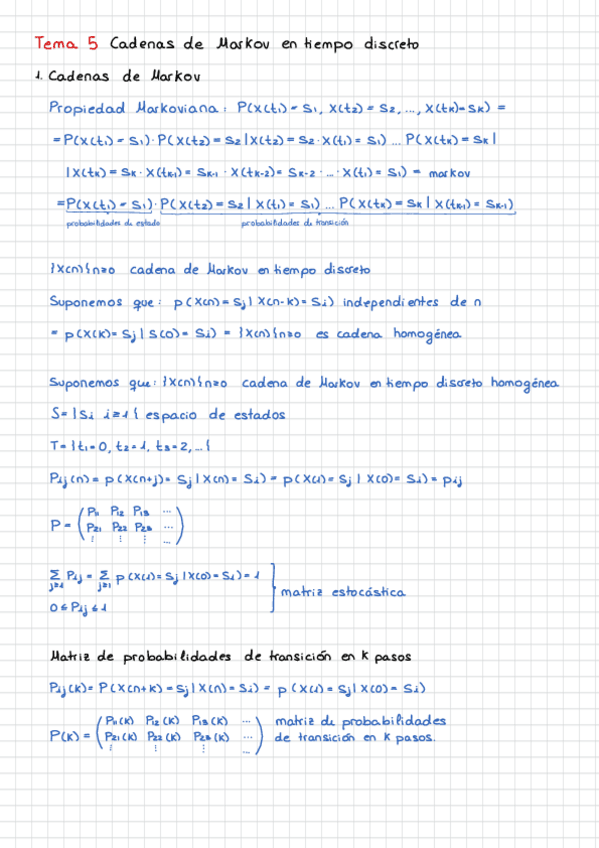 Tema 5 Cadenas de Markov en tiempo discreto
1. Cadenas de Markov
Propiedad Markoviana: P(X(t₁) = S₁, X(t₂) = S₂, ..., X(tₖ) = Sₖ) =
= P(X(t₁) = S₁) · P(X(t₂) = S₂ | X(t₂) = S₂ · X(t₁) = S₁) ... P(X(tₖ) = Sₖ |
| X(tₖ) = Sₖ · X(tₖ₋₁) = Sₖ₋₁ · X(tₖ₋₂) = Sₖ₋₂ · ... · X(t₁) = S₁) = markov
= P(X(t₁) = S₁) · P(X(t₂) = S₂ | X(t₁) = S₁) ... P(X(tₖ) = Sₖ | X(tₖ₋₁) = Sₖ₋₁)
probabilidades de estado probabilidades de transición
}X(n){n≥0 cadena de Markov en tiempo discreto
Suponemos que: p(X(n) = Sj | X(n-k) = Si) independientes de n
= p(X(k) = Sj | S(0) = Si) = }X(n){n≥0 es cadena homogénea
Suponemos que: }X(n){n≥0 cadena de Markov en tiempo discreto homogénea
S = {Si i≥1{ espacio de estados
T = }t₁=0, t₂=1, t₃=2, ...{
Pij(n) = p(X(n+j) = Sj | X(n) = Si) = p(X(1) = Sj | X(0) = Si) = pij
P = ( P₁₁ P₁₂ P₁₃ ...
P₂₁ P₂₂ P₂₃ ...
⋮ ⋮ ⋮ ... )
∑ j≥1 Pij = ∑ j≥1 p(X(1) = Sj | X(0) = Si) = 1
0 ≤ Pij ≤ 1
matriz estocástica
Matriz de probabilidades de transición en k pasos
Pij(k) = P(X(n+k) = Sj | X(n) = Si) = p(X(1) = Sj | X(0) = Si)
P(k) = ( P₁₁(k) P₁₂(k) P₁₃(k) ... matriz de probabilidades
P₂₁(k) P₂₂(k) P₂₃(k) ... de transición en k pasos.
⋮ ⋮ ⋮ ... )